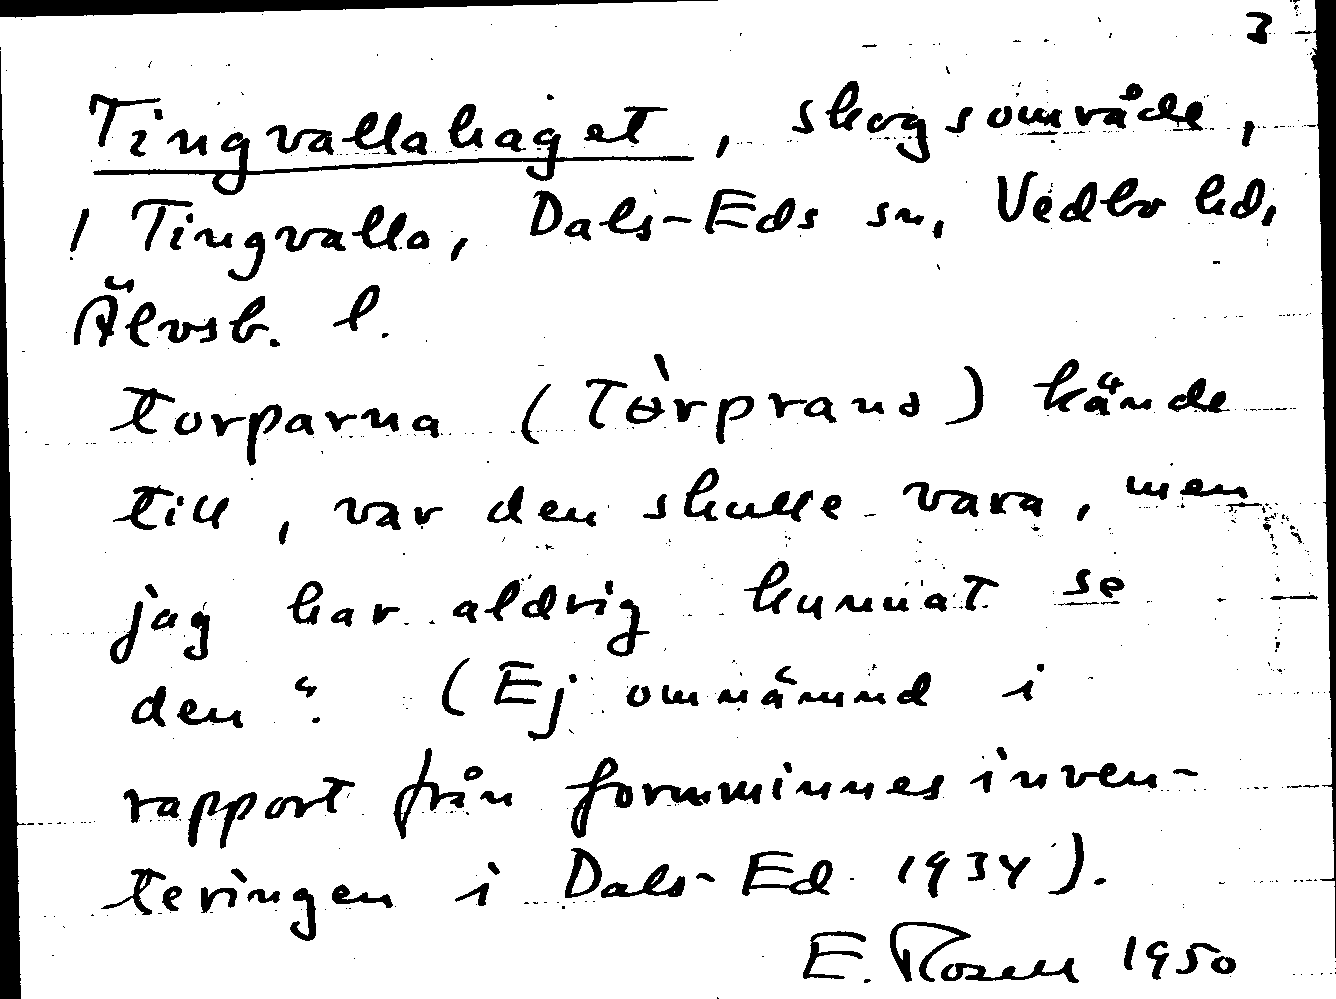 3
Tingvallahaget, skogsområde,
/ Tingvalla, Dals-Eds sn, Vedbo hd,
Älvsb. l.
torparna (Tòrprana) kände
till, var den skulle vara, men
jag har aldrig kunnat se
den". (Ej omnämnd i
rapport från fornminnesinven-
teringen i Dals-Ed 1934).
E. Rosell 1950